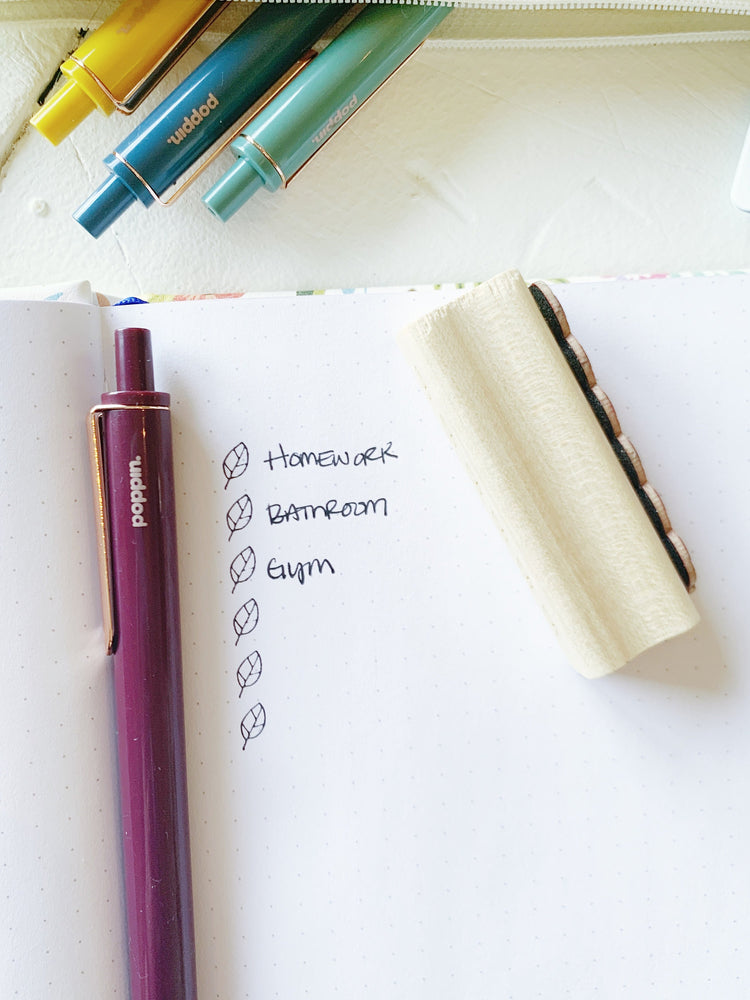 poppin.
poppin.
poppin.
HOMEWORK
BATHROOM
Gym